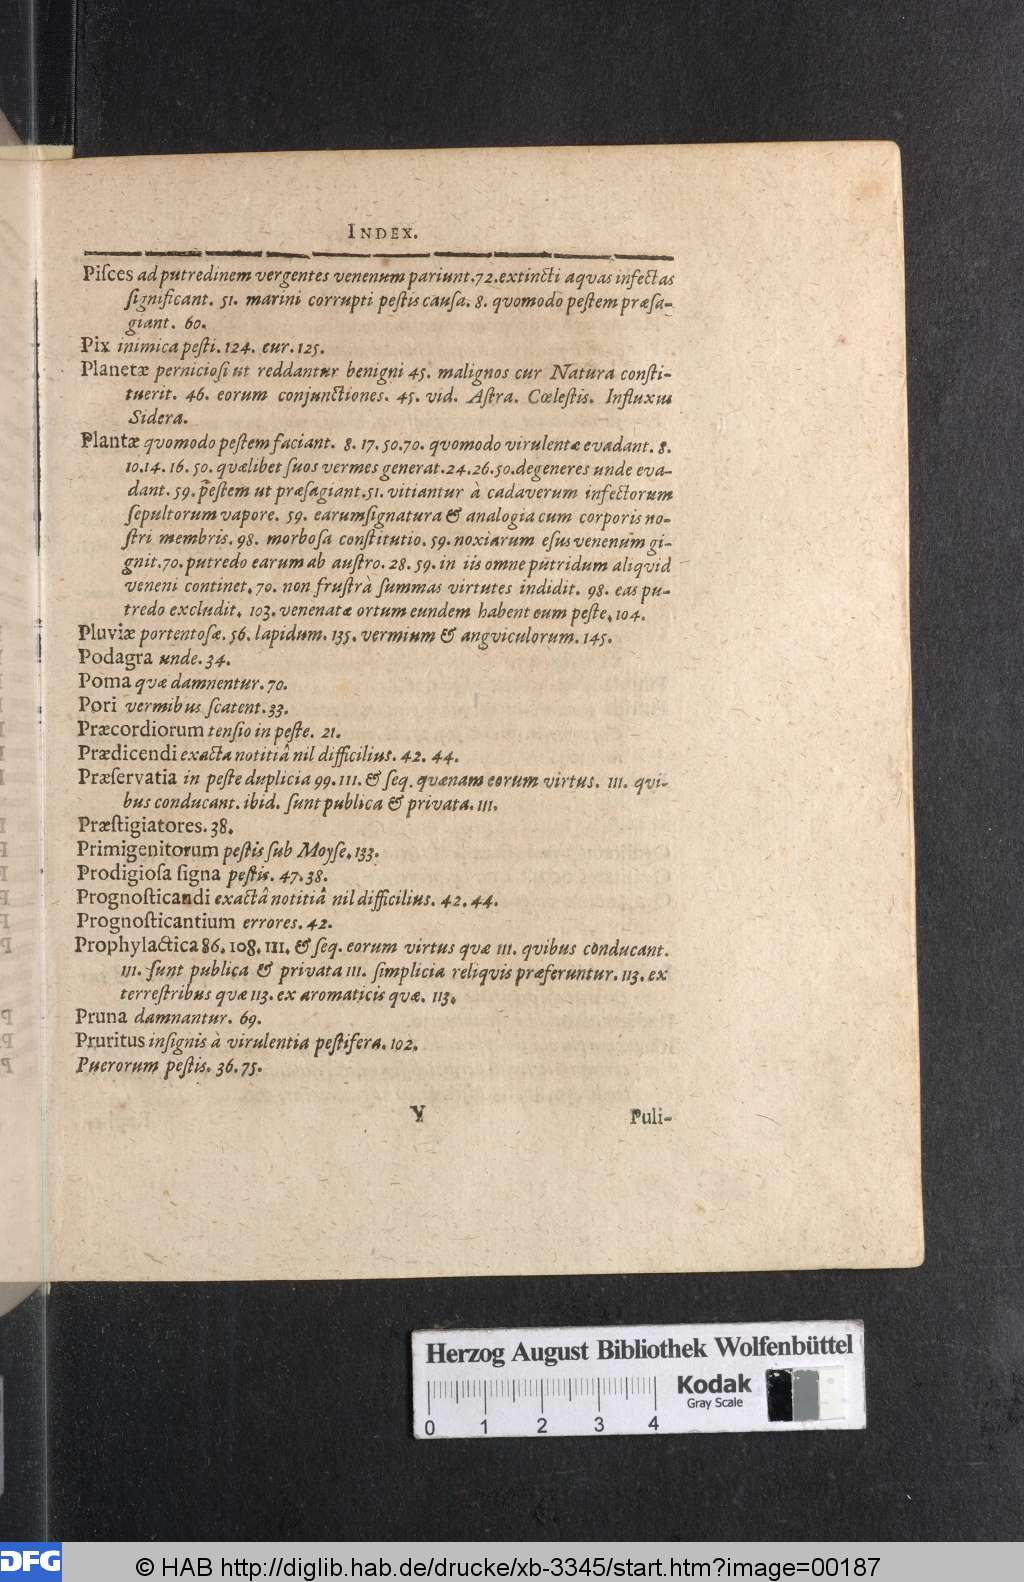 INDEX.
Piſces ad putredinem vergentes venenum pariunt. 72. extincti aqvas infectas
ſignificant. 51. marini corrupti peſtis cauſa. 8. qvomodo peſtem præſa-
giant. 60.
Pix inimica peſti. 124. cur. 125.
Planetæ pernicioſi ut reddantur benigni 45. malignos cur Natura conſti-
tuerit. 46. eorum conjunctiones. 45. vid. Aſtra. Cœleſtis. Influxus
Sidera.
Plantæ qvomodo peſtem faciant. 8. 17. 50. 70. qvomodo virulentæ evadant. 8.
10. 14. 16. 50. qvælibet ſuos vermes generat. 24. 26. 50. degeneres unde eva-
dant. 59. peſtem ut præſagiant. 51. vitiantur à cadaverum infectorum
ſepultorum vapore. 59. earum ſignatura & analogia cum corporis no-
ſtri membris. 98. morboſa conſtitutio. 59. noxiarum eſus venenum gi-
gnit. 70. putredo earum ab auſtro. 28. 59. in iis omne putridum aliqvid
veneni continet. 70. non fruſtrà ſummas virtutes indidit. 98. eas pu-
tredo excludit. 103. venenatæ ortum eundem habent cum peſte. 104.
Pluviæ portentoſæ. 56. lapidum. 135. vermium & angviculorum. 145.
Podagra unde. 34.
Poma qvæ damnentur. 70.
Pori vermibus ſcatent. 33.
Præcordiorum tenſio in peſte. 21.
Prædicendi exacta notitiâ nil difficilius. 42. 44.
Præſervatia in peſte duplicia 99. 111. & ſeq. qvænam eorum virtus. 111. qvi-
bus conducant. ibid. ſunt publica & privata. 111.
Præſtigiatores. 38.
Primigenitorum peſtis ſub Moyſe. 133.
Prodigioſa ſigna peſtis. 47. 38.
Prognoſticandi exactâ notitiâ nil difficilius. 42. 44.
Prognoſticantium errores. 42.
Prophylactica 86. 108. 111. & ſeq. eorum virtus qvæ 111. qvibus conducant.
111. ſunt publica & privata 111. ſimplicia reliqvis præferuntur. 113. ex
terreſtribus qvæ 113. ex aromaticis qvæ. 113.
Pruna damnantur. 69.
Pruritus inſignis à virulentia peſtifera. 102.
Puerorum peſtis. 36. 75.
Y Puli-
Herzog August Bibliothek Wolfenbüttel
Kodak
Gray Scale
0 1 2 3 4
DFG © HAB http://diglib.hab.de/drucke/xb-3345/start.htm?image=00187